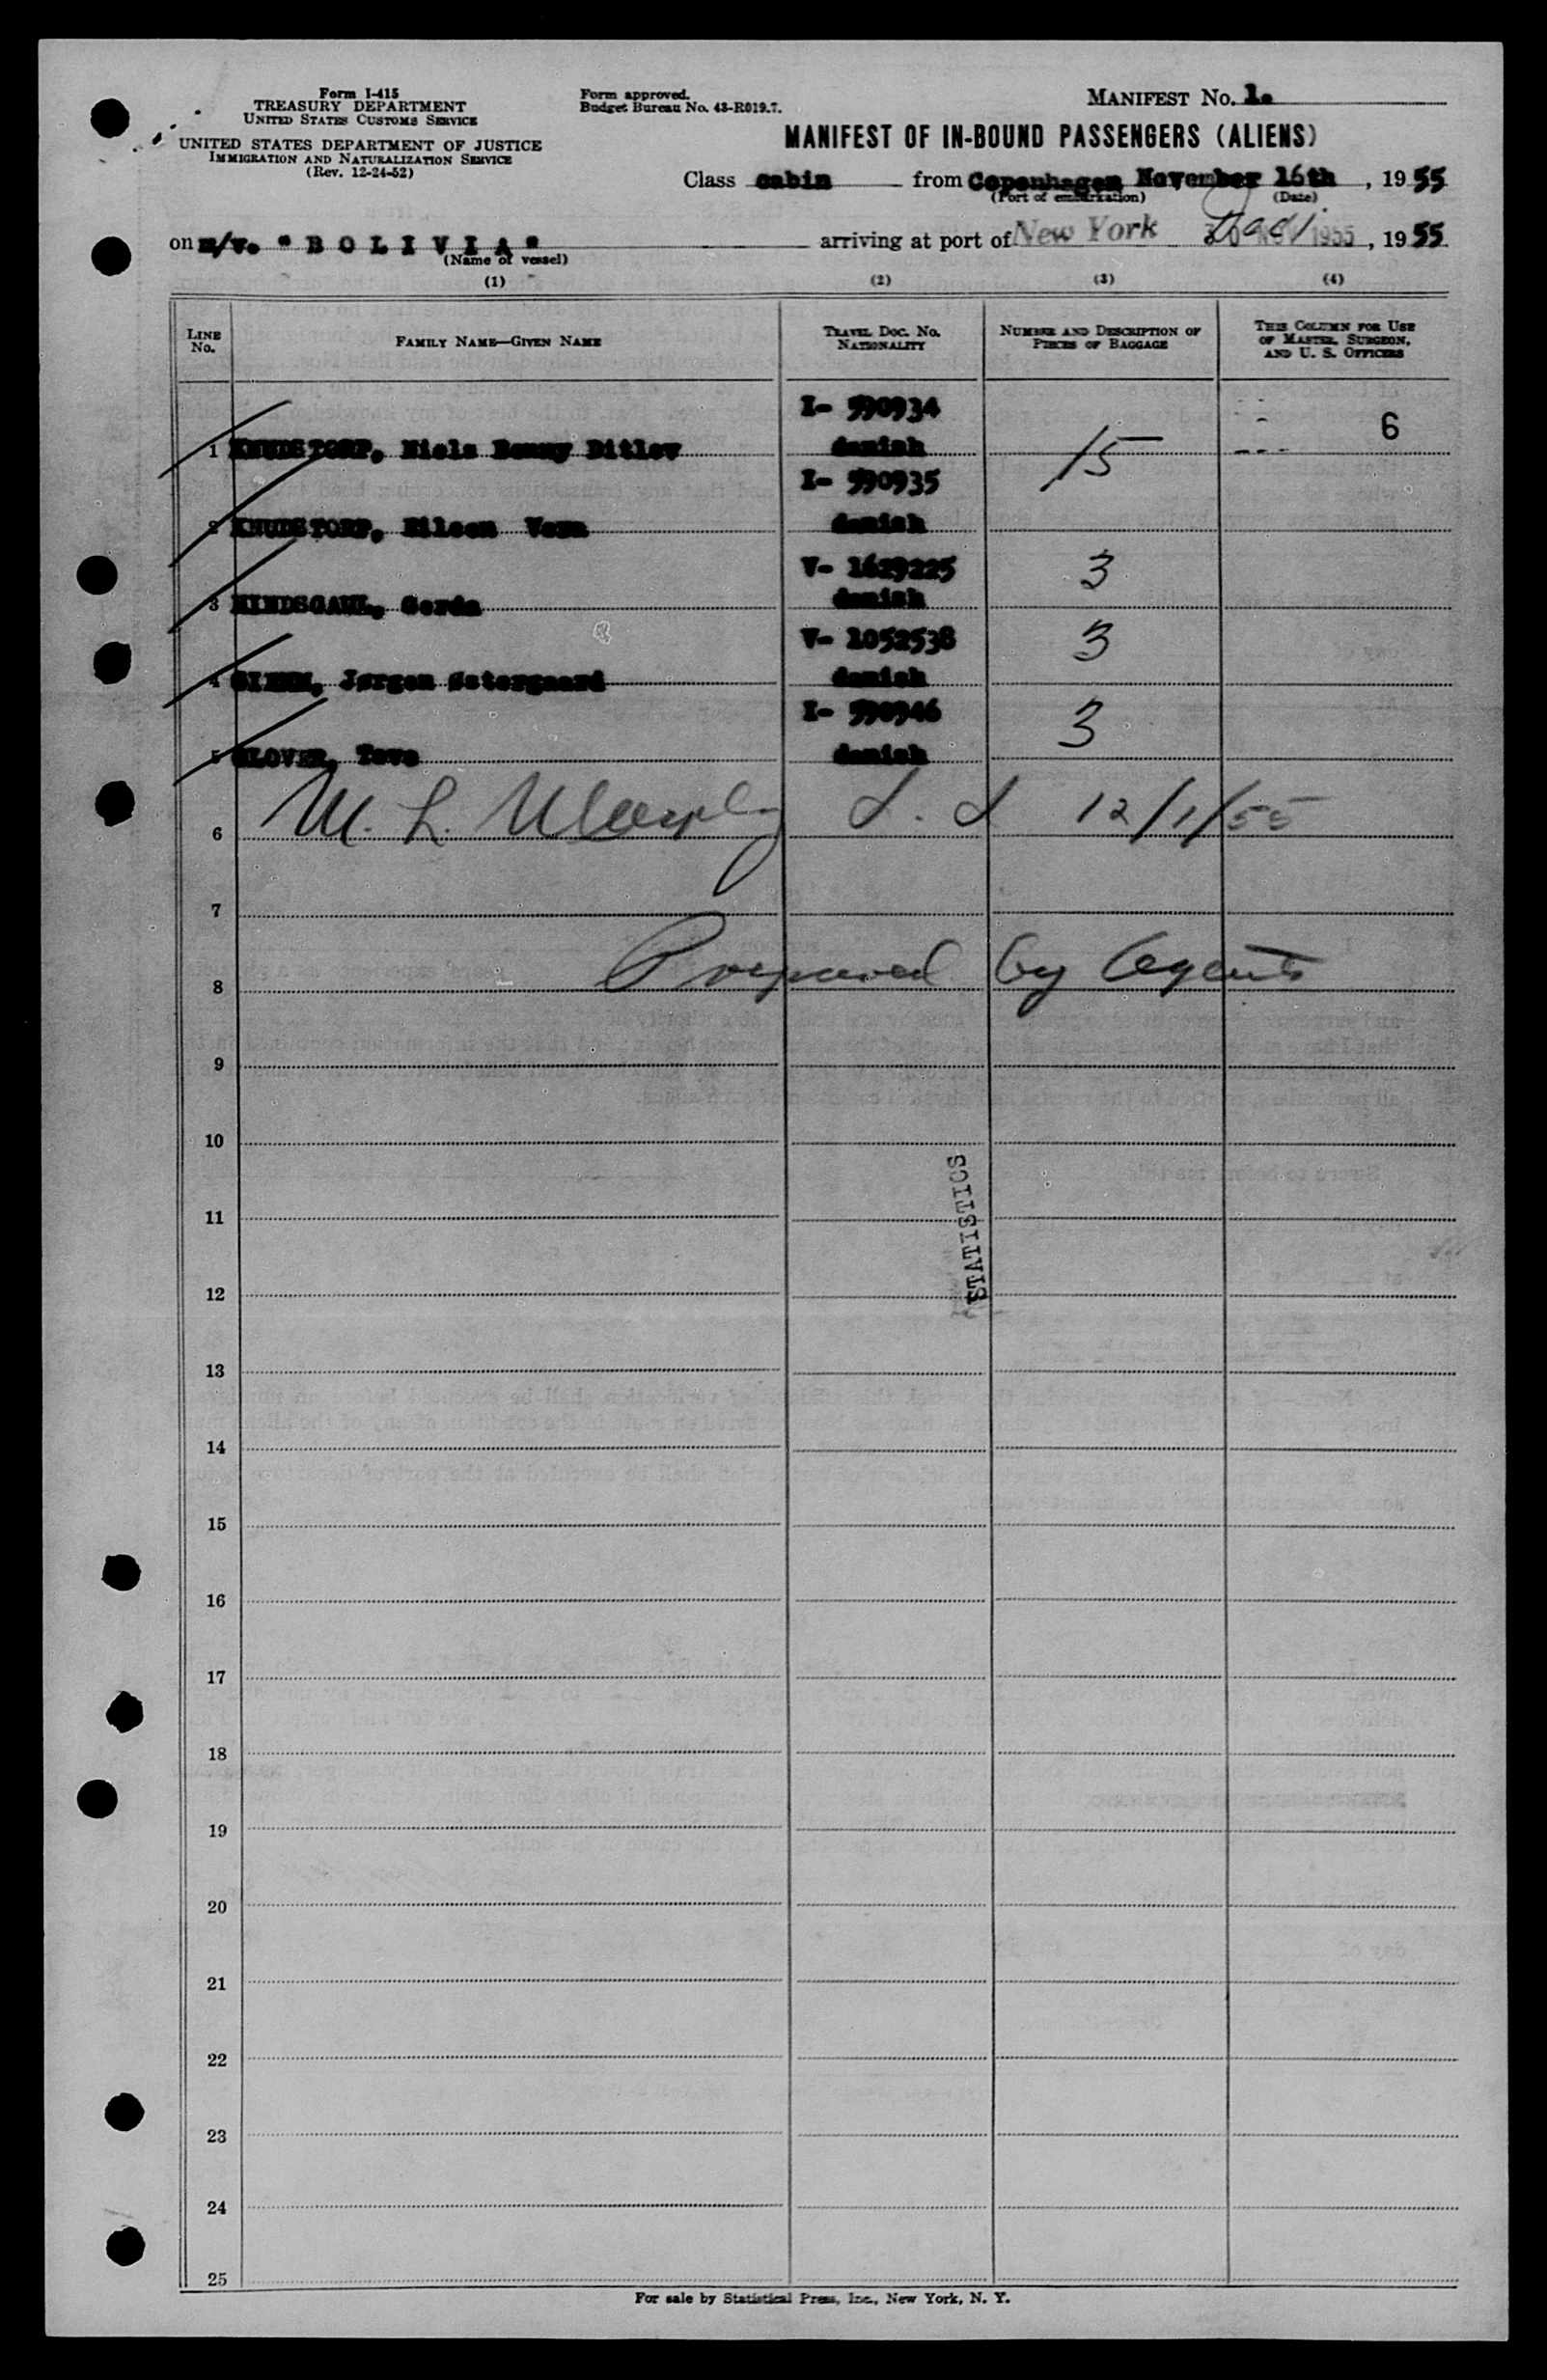 Form I-415
TREASURY DEPARTMENT
UNITED STATES CUSTOMS SERVICE
UNITED STATES DEPARTMENT OF JUSTICE
IMMIGRATION AND NATURALIZATION SERVICE
(Rev. 12-24-52)
Form approved.
Budget Bureau No. 43-R019.7.
MANIFEST No. 1.
MANIFEST OF IN-BOUND PASSENGERS (ALIENS)
Class cabin from Copenhagen November 16th, 1955
(Port of embarkation) (Date)
on m/v. "BOLIVIA" arriving at port of New York 1955, 1955
(Name of vessel)
(1) (2) (3) (4)
LINE No. FAMILY NAME—GIVEN NAME TRAVEL DOC. No. NATIONALITY NUMBER AND DESCRIPTION OF PIECES OF BAGGAGE THIS COLUMN FOR USE OF MASTER, SURGEON, AND U. S. OFFICERS
I- 590934
1 KNUDSTORP, Niels Benny Ditlev danish 15 6
I- 590935
2 KNUDSTORP, Eileen Vera danish
V- 1629225 3
3 MINDSGAUL, Gerda danish
V- 1052538 3
4 Jørgen Østergaard danish
I- 590946 3
5 GLOVER, Tove danish
6 M. L. 12/1/55
7
8 Prepared by Agents
9
10
STATISTICS
11
12
13
14
15
16
17
18
19
20
21
22
23
24
25
For sale by Statistical Press, Inc., New York, N. Y.